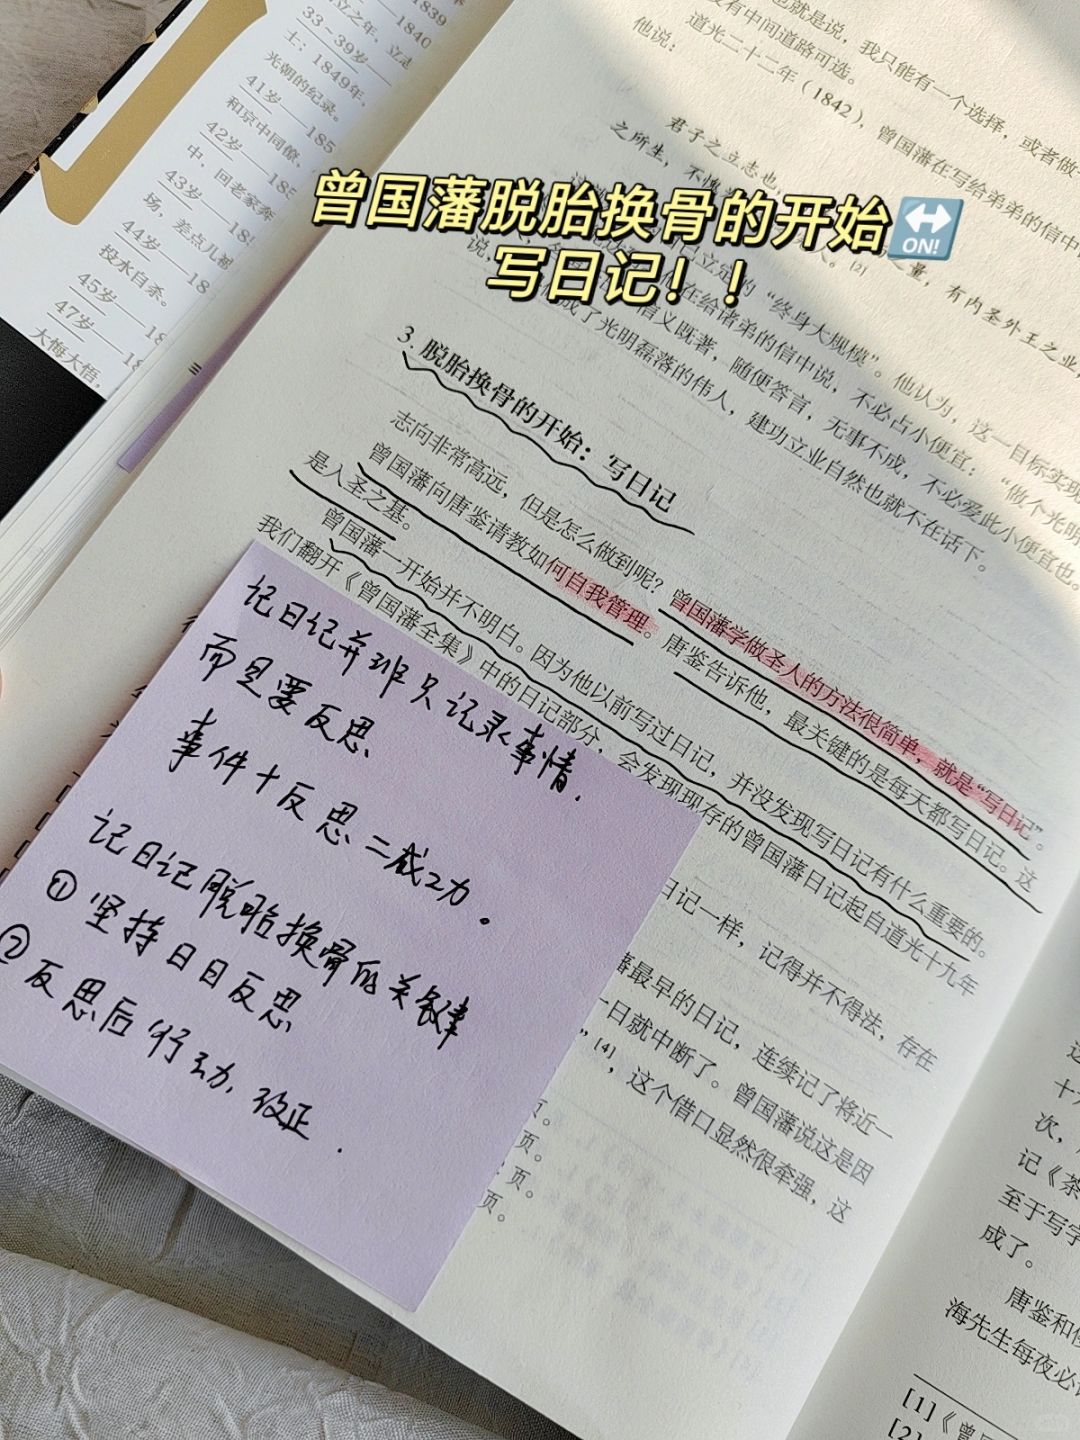 曾国藩脱胎换骨的开始
ON!
写日记！！
1839
1840
33～39岁
士：1849年，
光朝的纪录。
41岁——185
和京中同僚，
42岁——185
中，回老家奔
43岁——18
场，差点儿被
44岁——18
投水自杀。
45岁——18
47岁
大悔大悟，
也就是说，我只能有一个选择，或者做
没有中间道路可选。
道光二十二年（1842），曾国藩在写给弟弟的信中
他说：
君子之立志也，
之量，有内圣外王之业，
之所生，不
人。[2]
立定的“终身大规模”。他认为，这一目标实现
他在给诸弟的信中说，不必占小便宜：“做个光明
信义既著，随便答言，无事不成，不必爱此小便宜也。
成了光明磊落的伟人，建功立业自然也就不在话下。
3. 脱胎换骨的开始：写日记
志向非常高远，但是怎么做到呢？曾国藩学做圣人的方法很简单，就是“写日记”。
曾国藩向唐鉴请教如何自我管理。唐鉴告诉他，最关键的是每天都写日记。这
是入圣之基。
曾国藩一开始并不明白。因为他以前写过日记，并没发现写日记有什么重要的。
我们翻开《曾国藩全集》中的日记部分，会发现现存的曾国藩日记起自道光十九年
日记一样，记得并不得法，存在
藩最早的日记，连续记了将近一
一日就中断了。曾国藩说这是因
”[4]，这个借口显然很牵强，这
页。
页。
页。
页。
记日记并非只记录事情.
而且要反思
事件+反思=成功。
记日记脱胎换骨的关键
① 坚持日日反思
② 反思后行动,改正.
次，
记《茶
至于写字
成了。
唐鉴和倭
海先生每夜必
[1]《曾
[2]